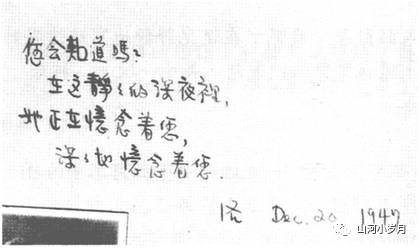 您会知道嗎?
在这靜々的深夜裡,
她正在憶念着您,
深々地憶念着您.
洛 Dec. 20 1947
山河小岁月